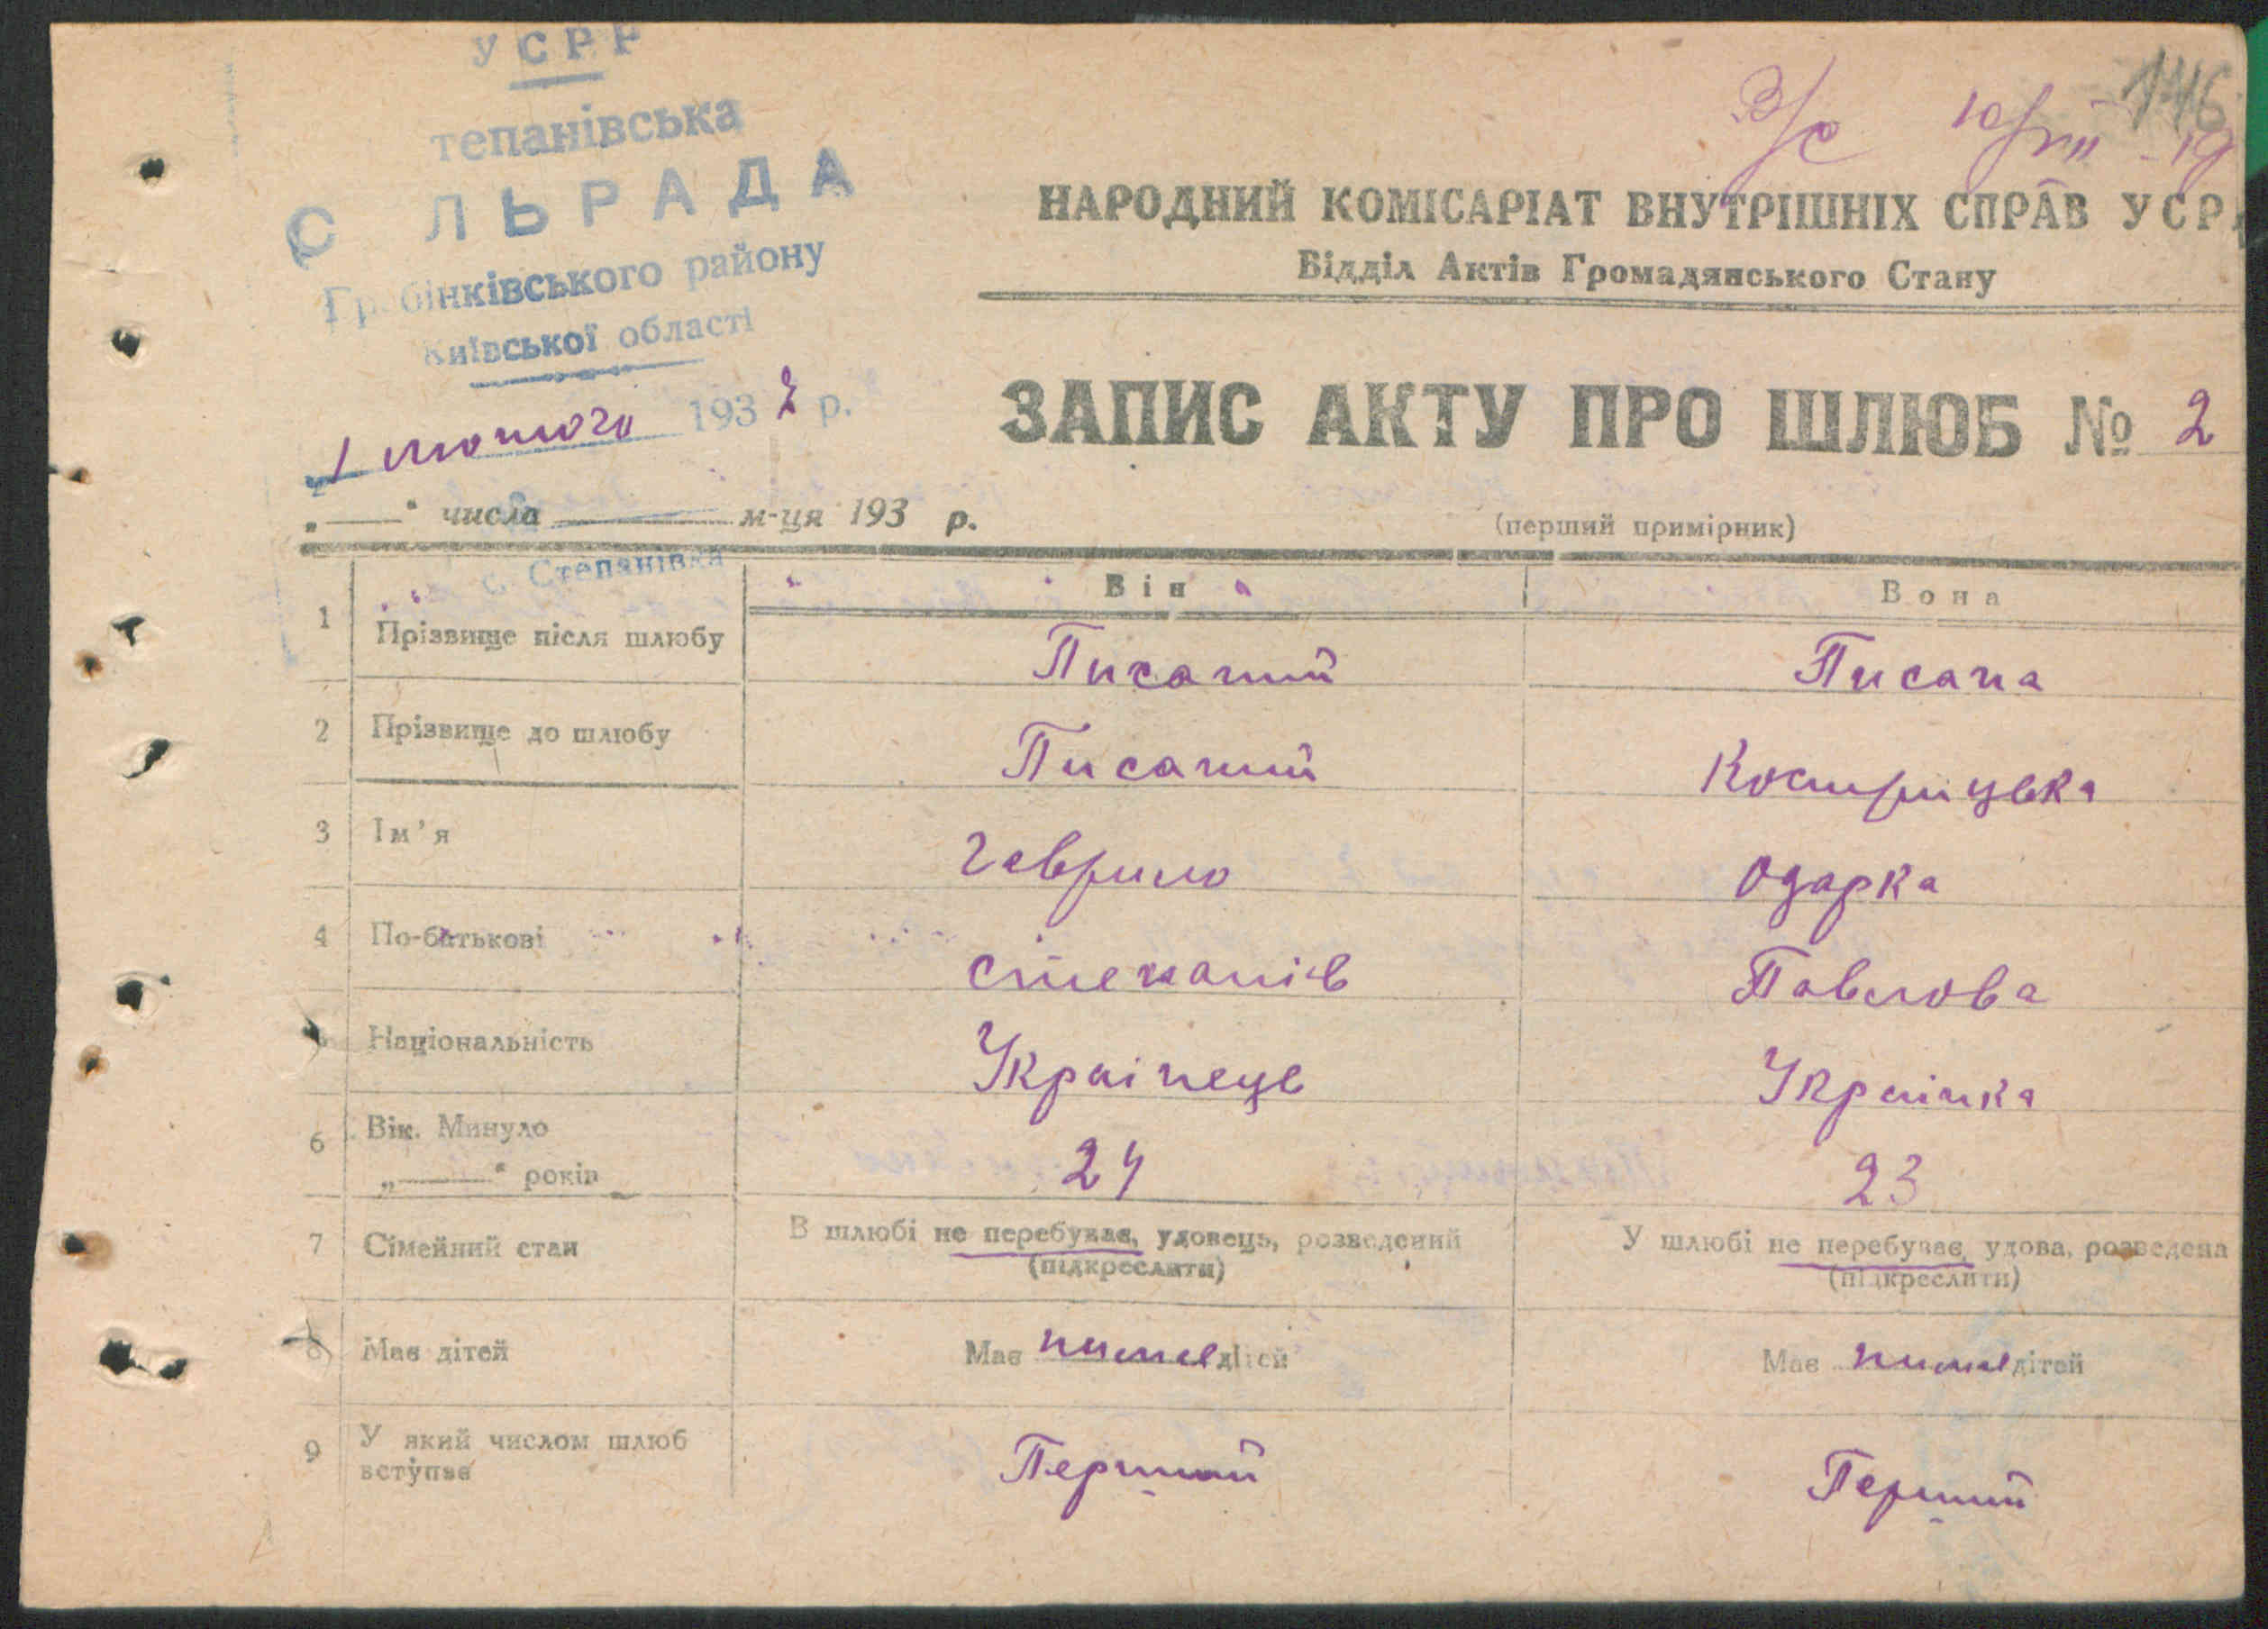 УСРР
тепанівська
С ЛЬРАДА
Гр бінківського району
Київської області
1 лютого 1932 р.
146
НАРОДНИЙ КОМІСАРІАТ ВНУТРІШНІХ СПРАВ УСР
Відділ Актів Громадянського Стану
ЗАПИС АКТУ ПРО ШЛЮБ № 2
„ “ числа м-ця 193 р.
(перший примірник)
с. Степанівка
Він Вона
1 Прізвище після шлюбу Писаний Писана
2 Прізвище до шлюбу Писаний Кострицька
3 Ім'я Гаврило Одарка
4 По-батькові степанів Павлова
Національність Українець Українка
6 Вік. Минуло
„ “ років 24 23
7 Сімейний стан В шлюбі не перебуває, удовець, розведений У шлюбі не перебуває, удова, розведена
(підкреслити) (підкреслити)
8 Має дітей Має немає дітей Має немає дітей
9 У який числом шлюб
вступає Перший Перший